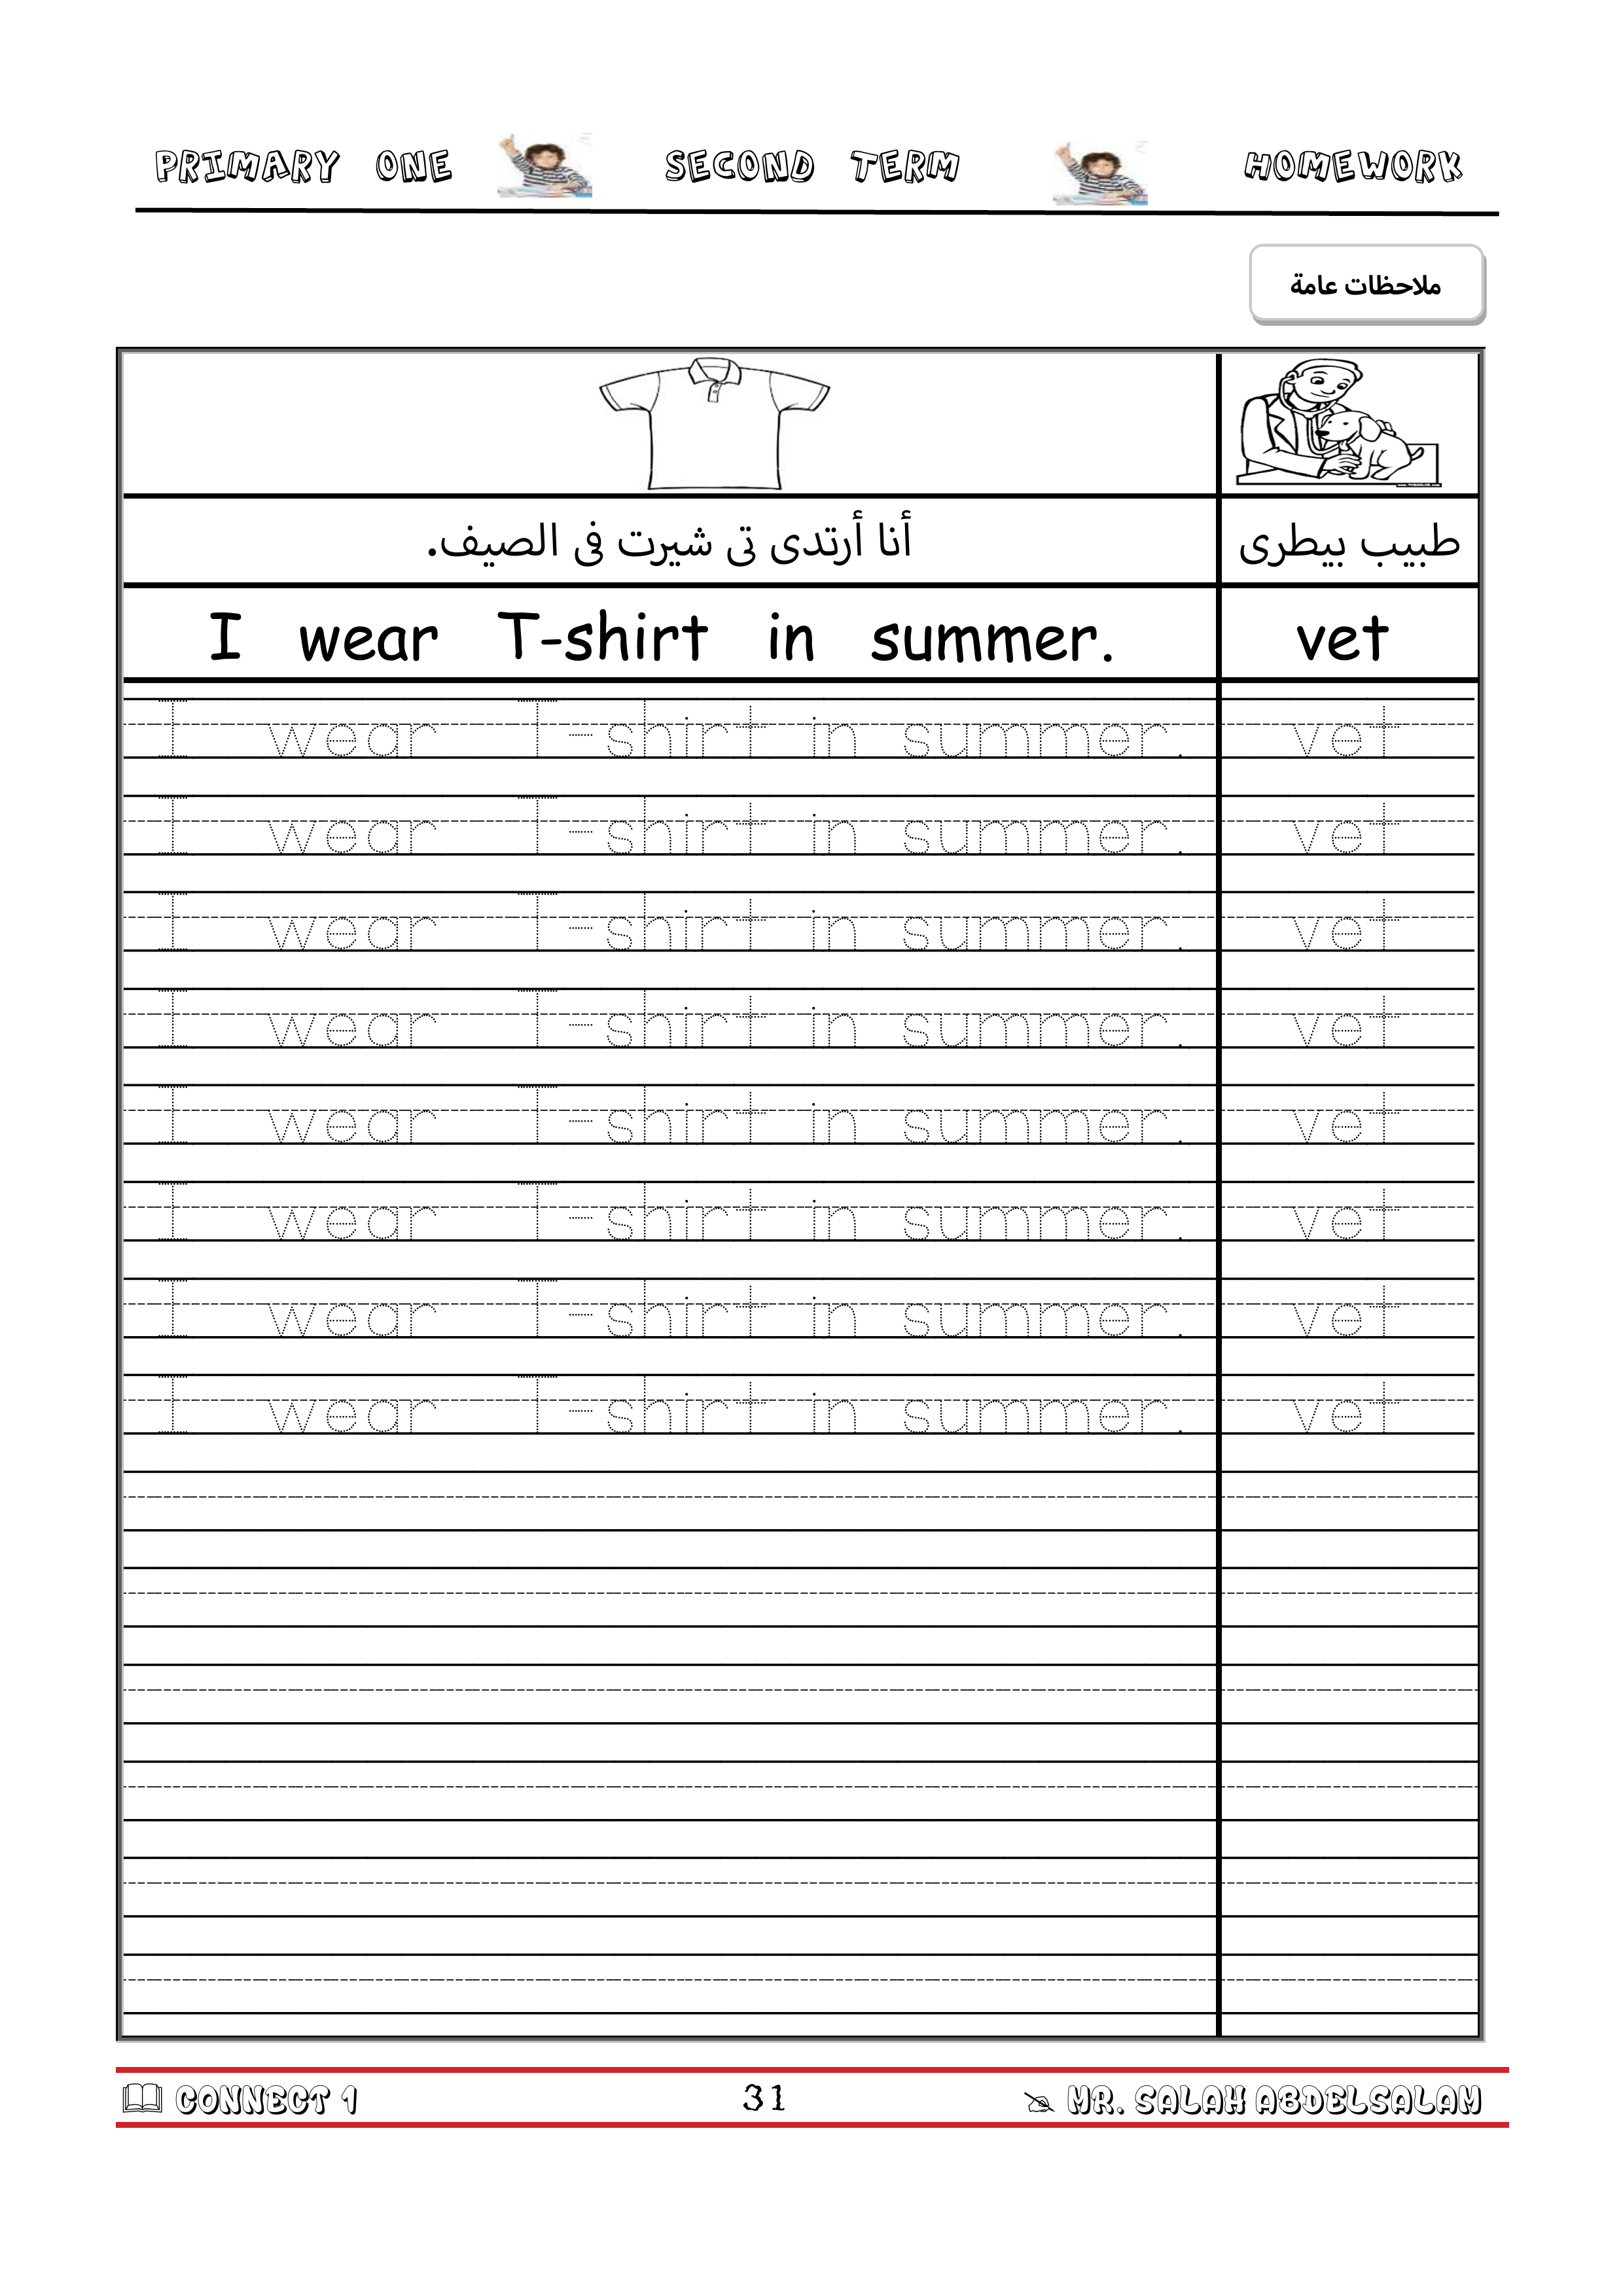 PRIMARY ONE SECOND TERM HOMEWORK
ملاحظات عامة
أنا أرتدى تى شيرت فى الصيف. طبيب بيطرى
I wear T-shirt in summer. vet
I wear T-shirt in summer. vet
I wear T-shirt in summer. vet
I wear T-shirt in summer. vet
I wear T-shirt in summer. vet
I wear T-shirt in summer. vet
I wear T-shirt in summer. vet
I wear T-shirt in summer. vet
I wear T-shirt in summer. vet
CONNECT 1 31 MR. SALAH ABDELSALAM